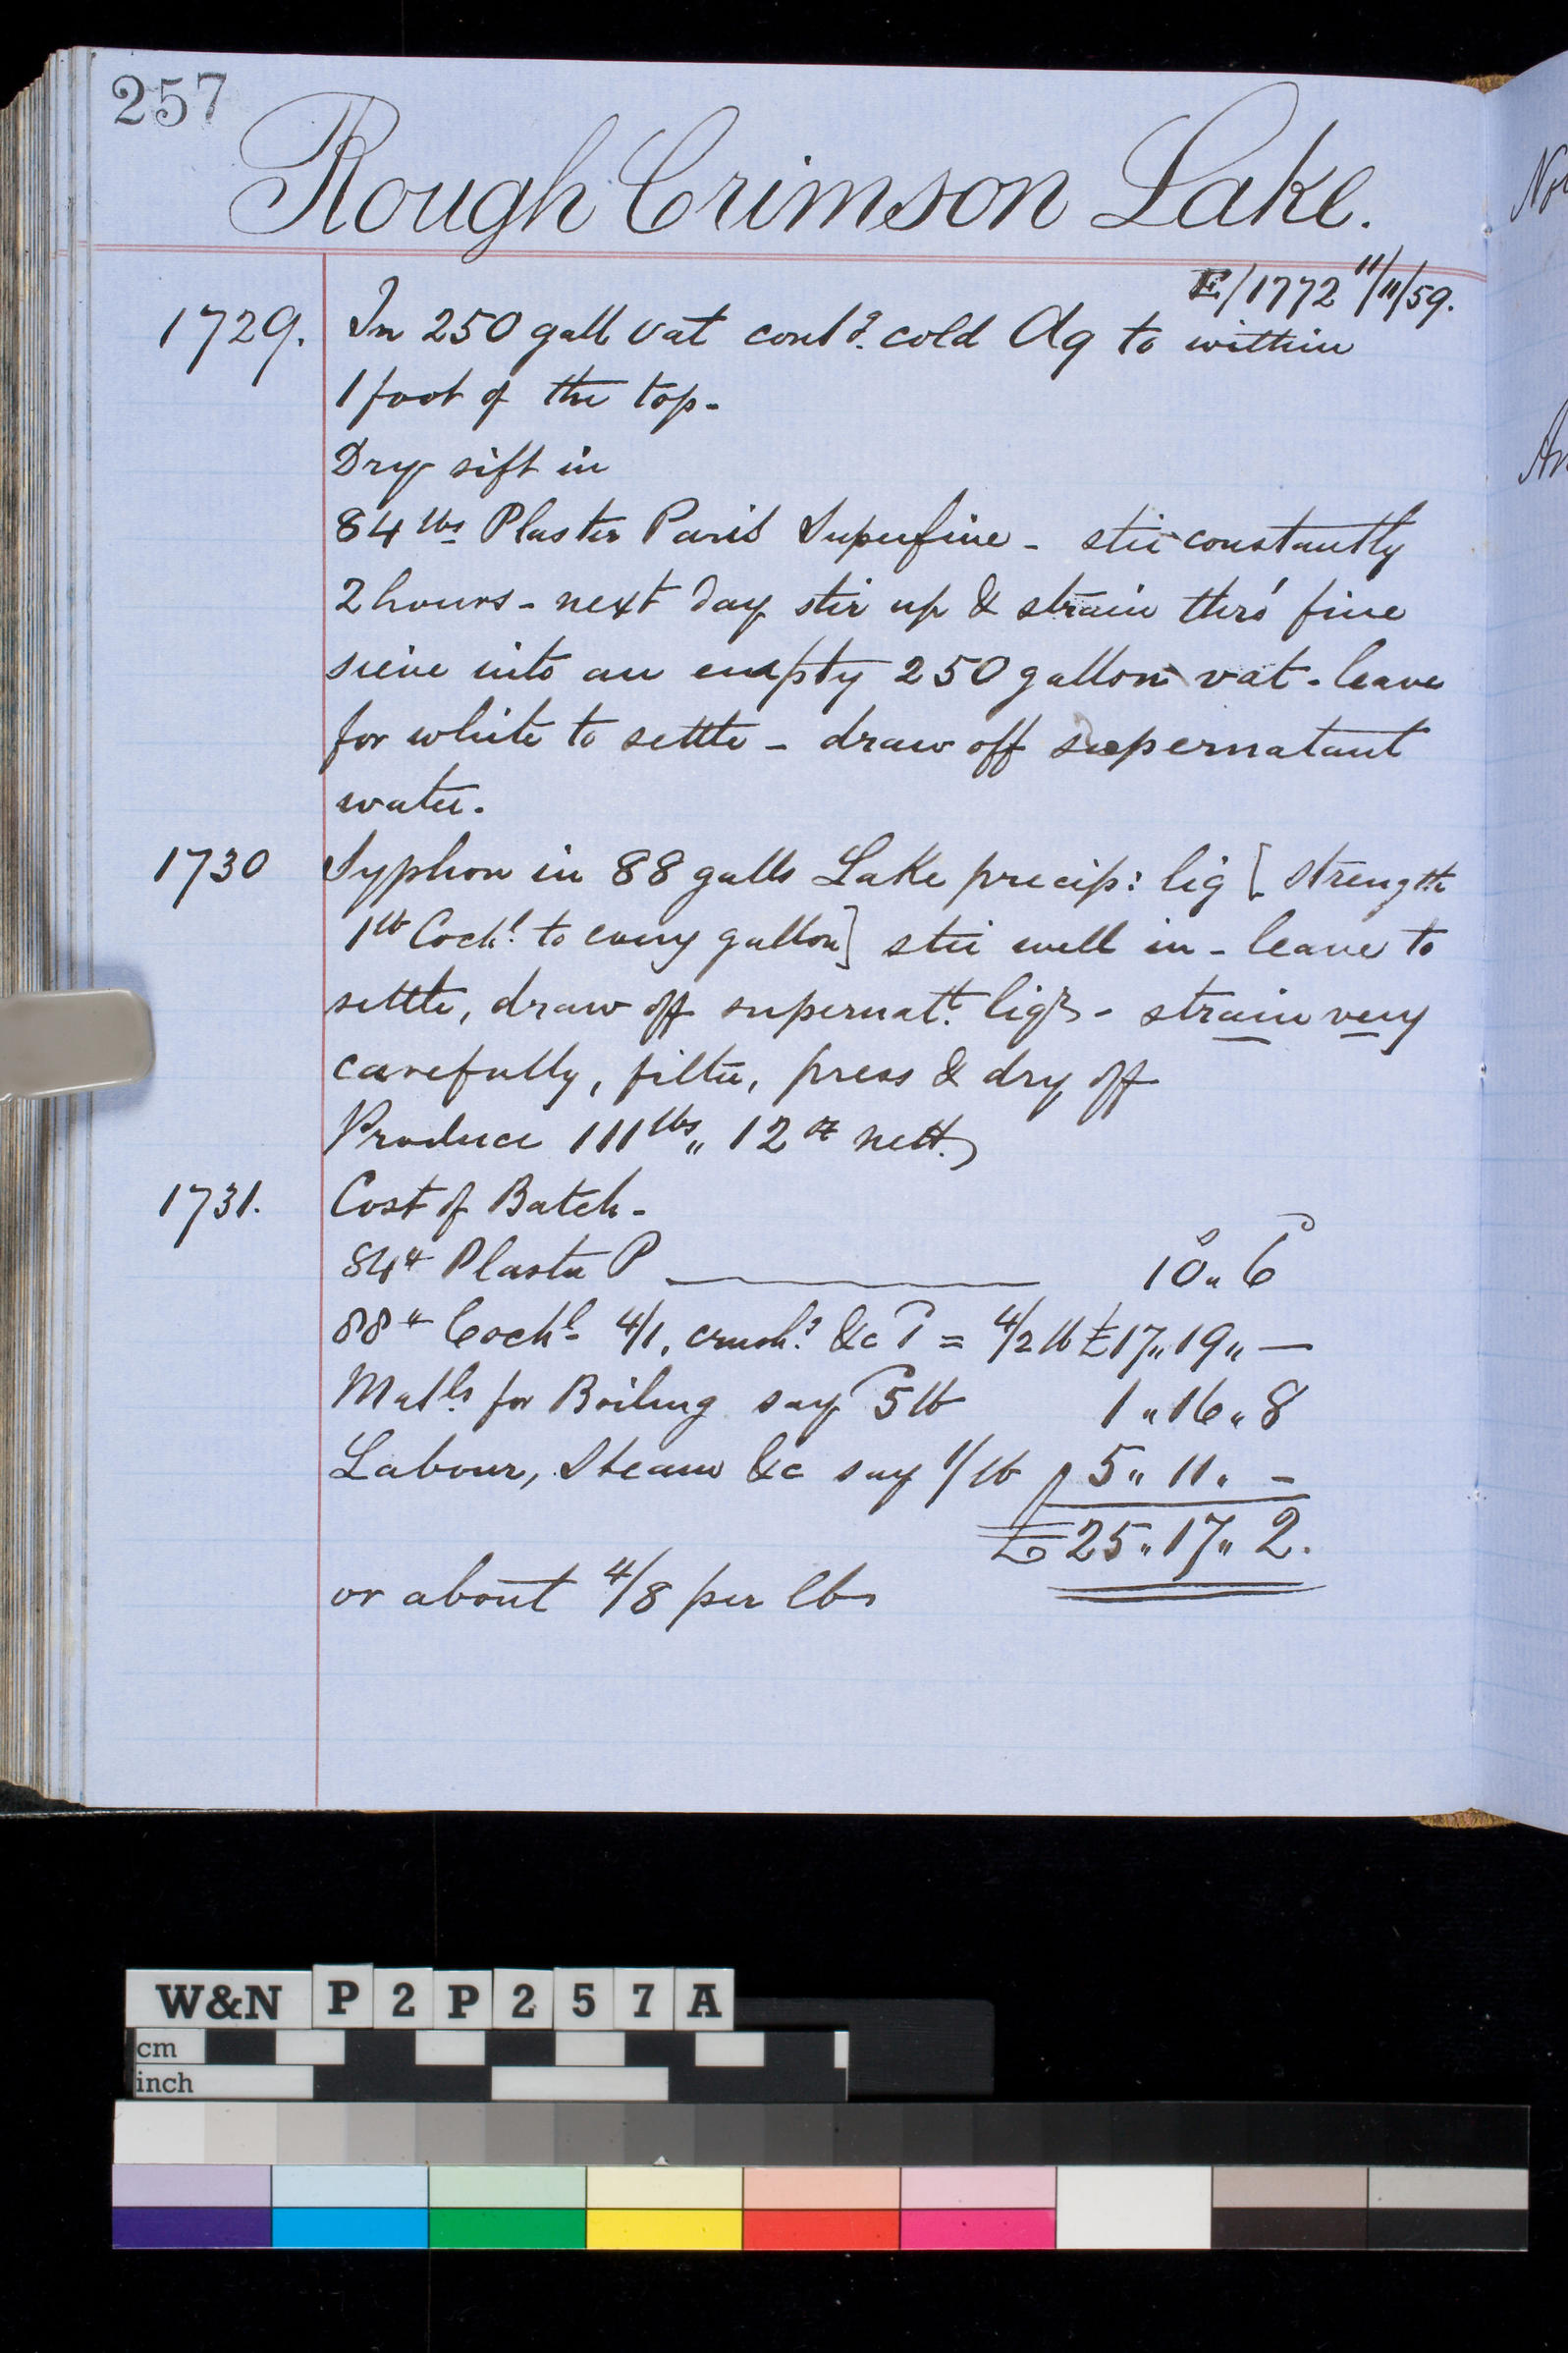 257
Rough Crimson Lake.
E/1772 11/11/59.
1729. In 250 gall vat contg. cold Aq to within
1 foot of the top-
Dry sift in
84 lbs Plaster Paris Superfine - stir constantly
2 hours - next day stir up & strain thro' fine
sieve into an empty 250 gallon vat - leave
for white to settle - draw off supernatant
water.
1730 Syphon in 88 galls Lake precip: liq [strength
1 lb Cochl. to every gallon] stir well in - leave to
settle, draw off supernatt. liqr - strain very
carefully, filter, press & dry off
Produce 111 lbs " 12 oz nett.
1731. Cost of Batch -
84 lb Plaster P 10 " 6
88 lb Cochl. 4/1, crushg. &c 1d = 4/2 lb £17 " 19 " —
Matls. for Boiling say 5d lb 1 " 16 " 8
Labour, Steam &c say 1/ lb 5 " 11 " -
£25 " 17 " 2.
or about 4/8 per lb
No
An
W&N P2P257A
cm
inch